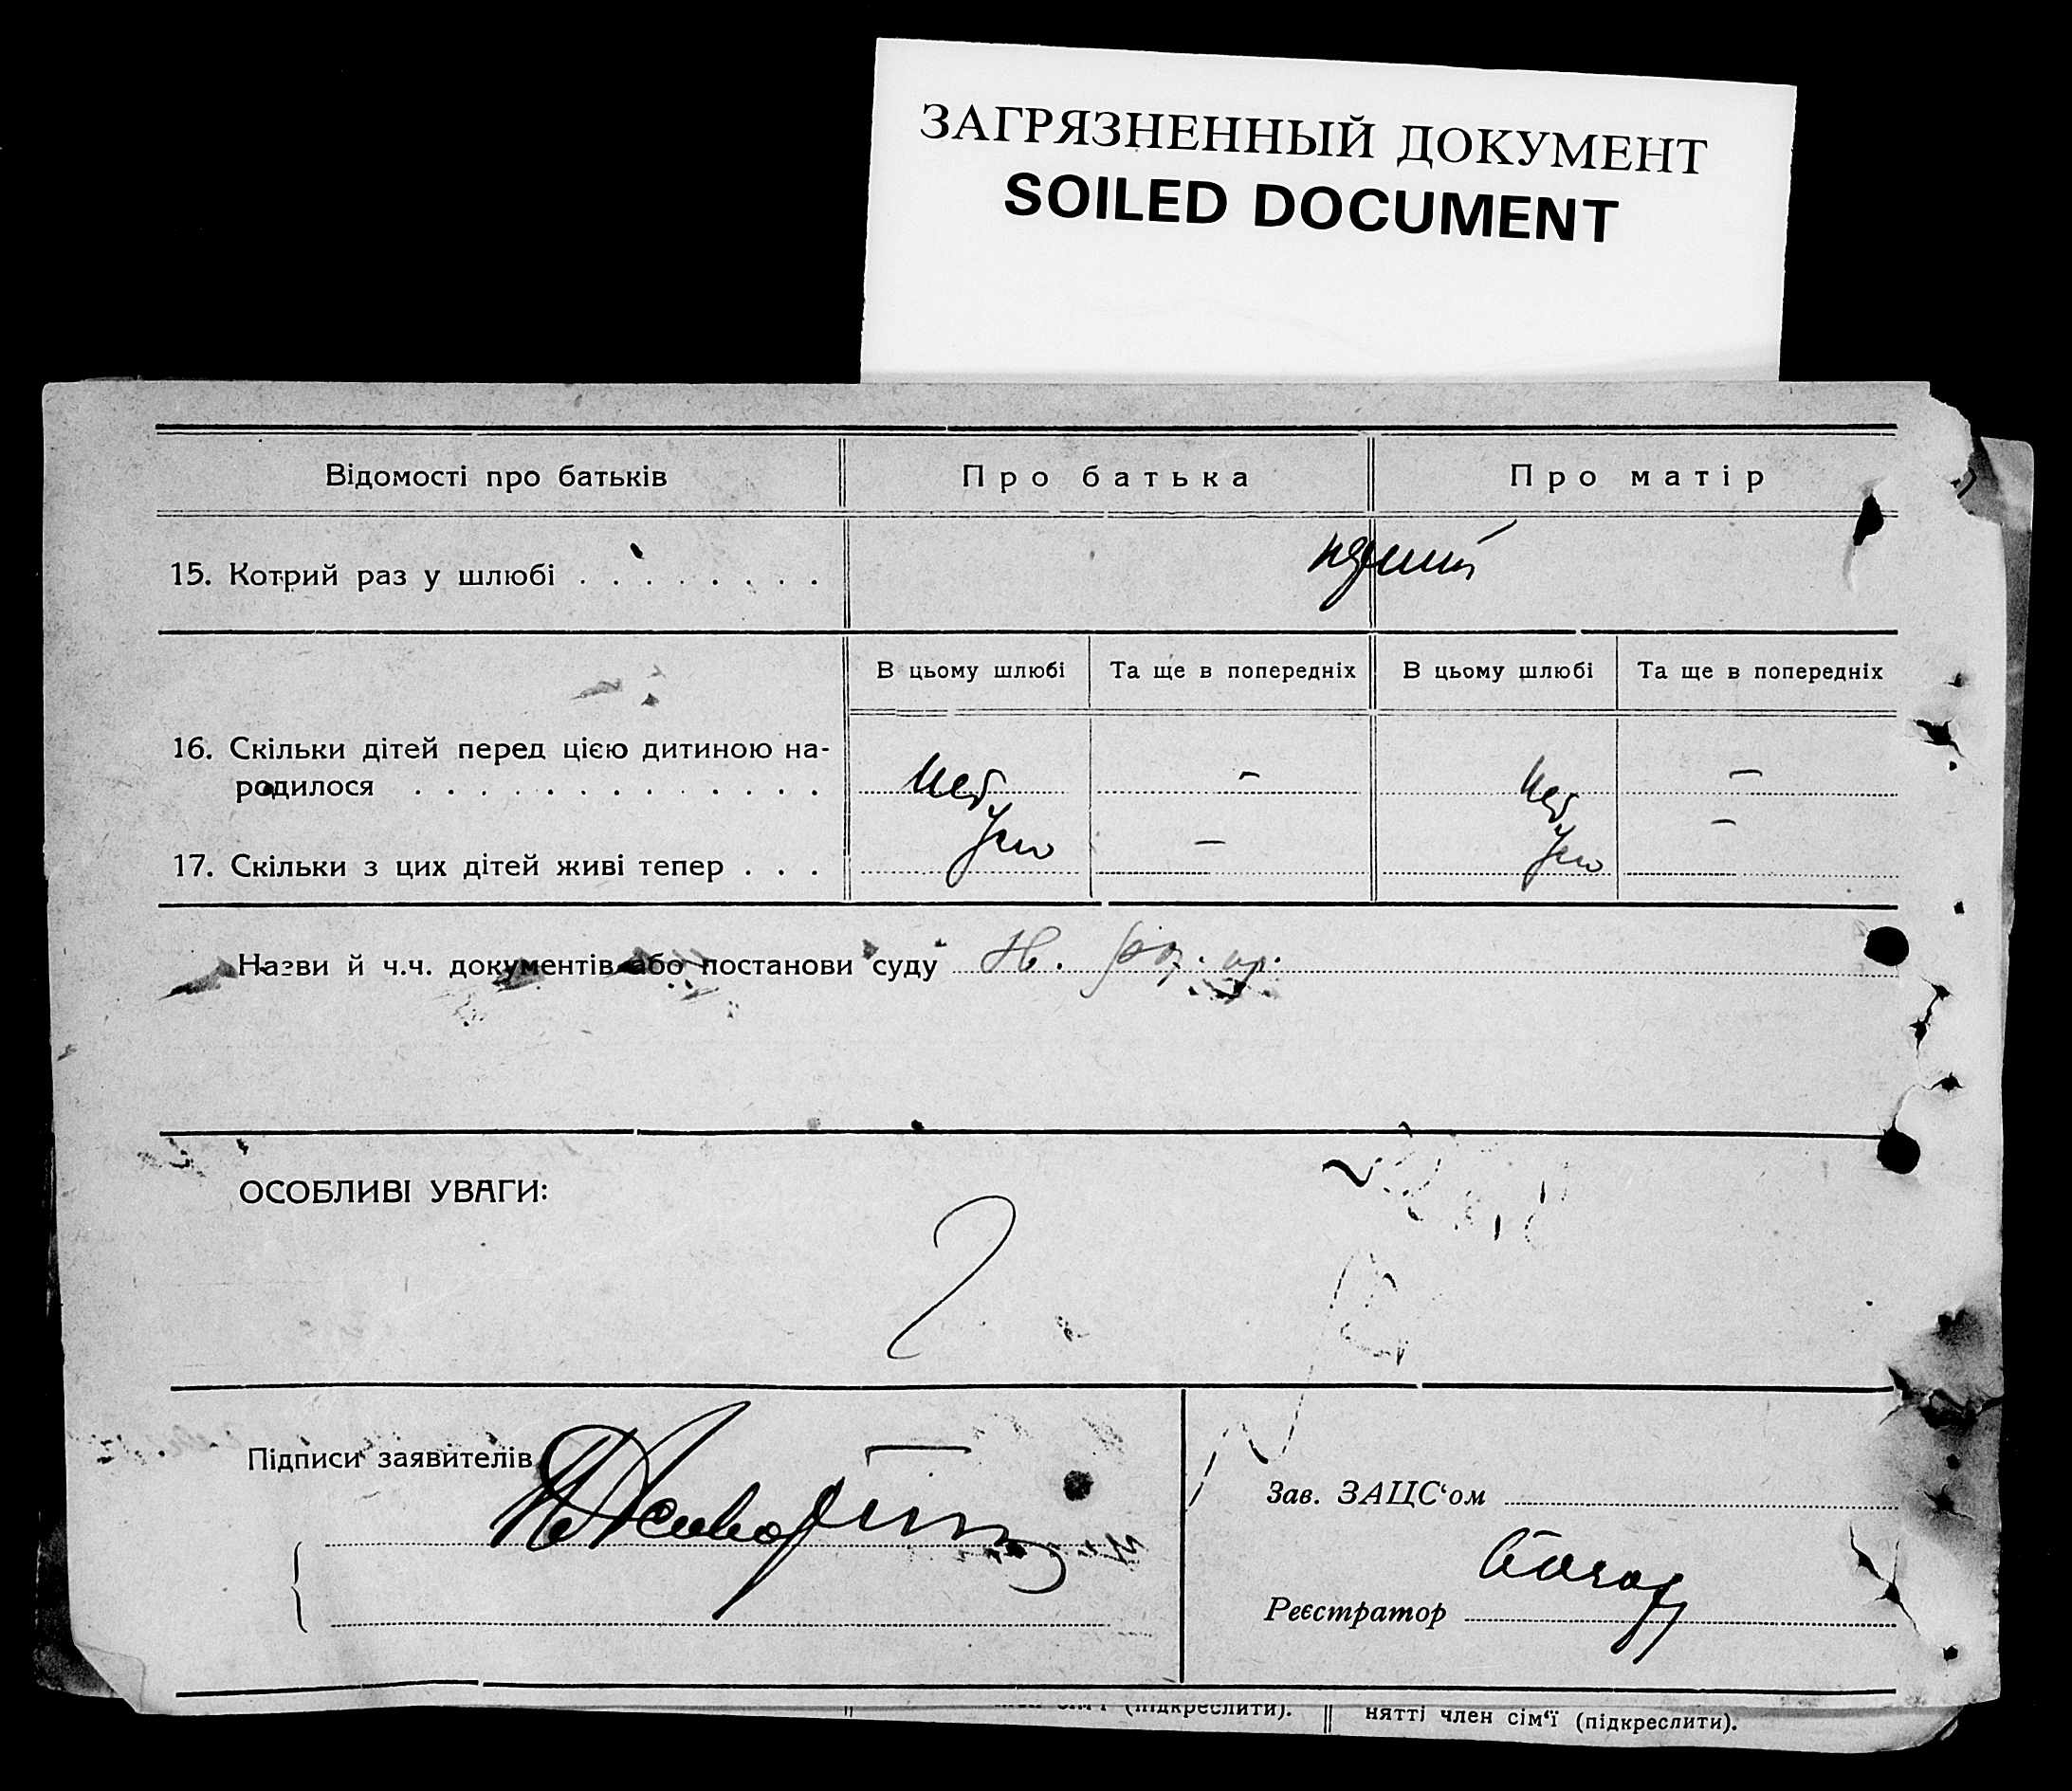 ЗАГРЯЗНЕННЫЙ ДОКУМЕНТ
SOILED DOCUMENT
Відомості про батьків
Про батька
Про матір
15. Котрий раз у шлюбі . . . . . . . .
В цьому шлюбі
Та ще в попередніх
В цьому шлюбі
Та ще в попередніх
16. Скільки дітей перед цією дитиною на-
родилося . . . . . . . . . . . . .
–
–
17. Скільки з цих дітей живі тепер . . .
–
–
Назви й ч.ч. документів або постанови суду
ОСОБЛИВІ УВАГИ:
Підписи заявителів
Зав. ЗАЦС‘ом
Реєстратор
сім‘ї (підкреслити).
нятті член сім‘ї (підкреслити).